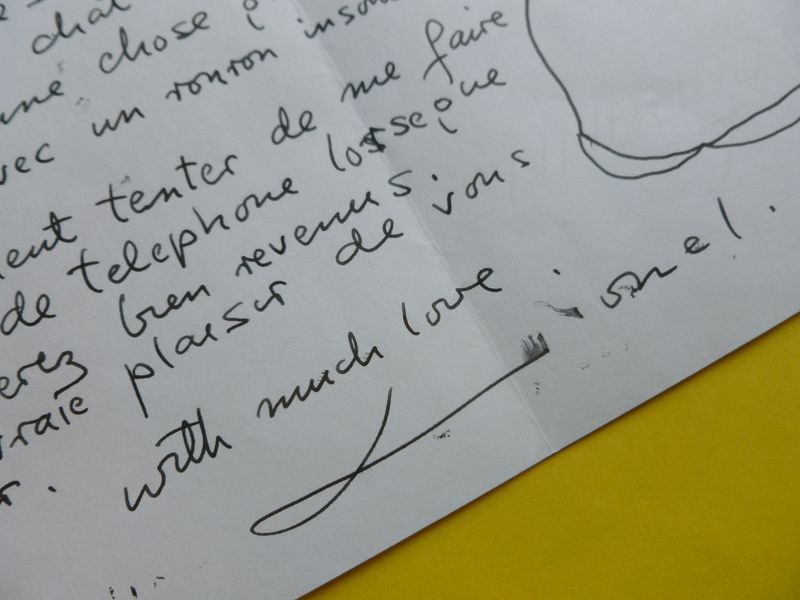 chat
une chose
vec un ronron
ment tenter de me faire
de telephone losseque
erez bien revenus.
vraie plaisir de vous
r. with much love. ionel.